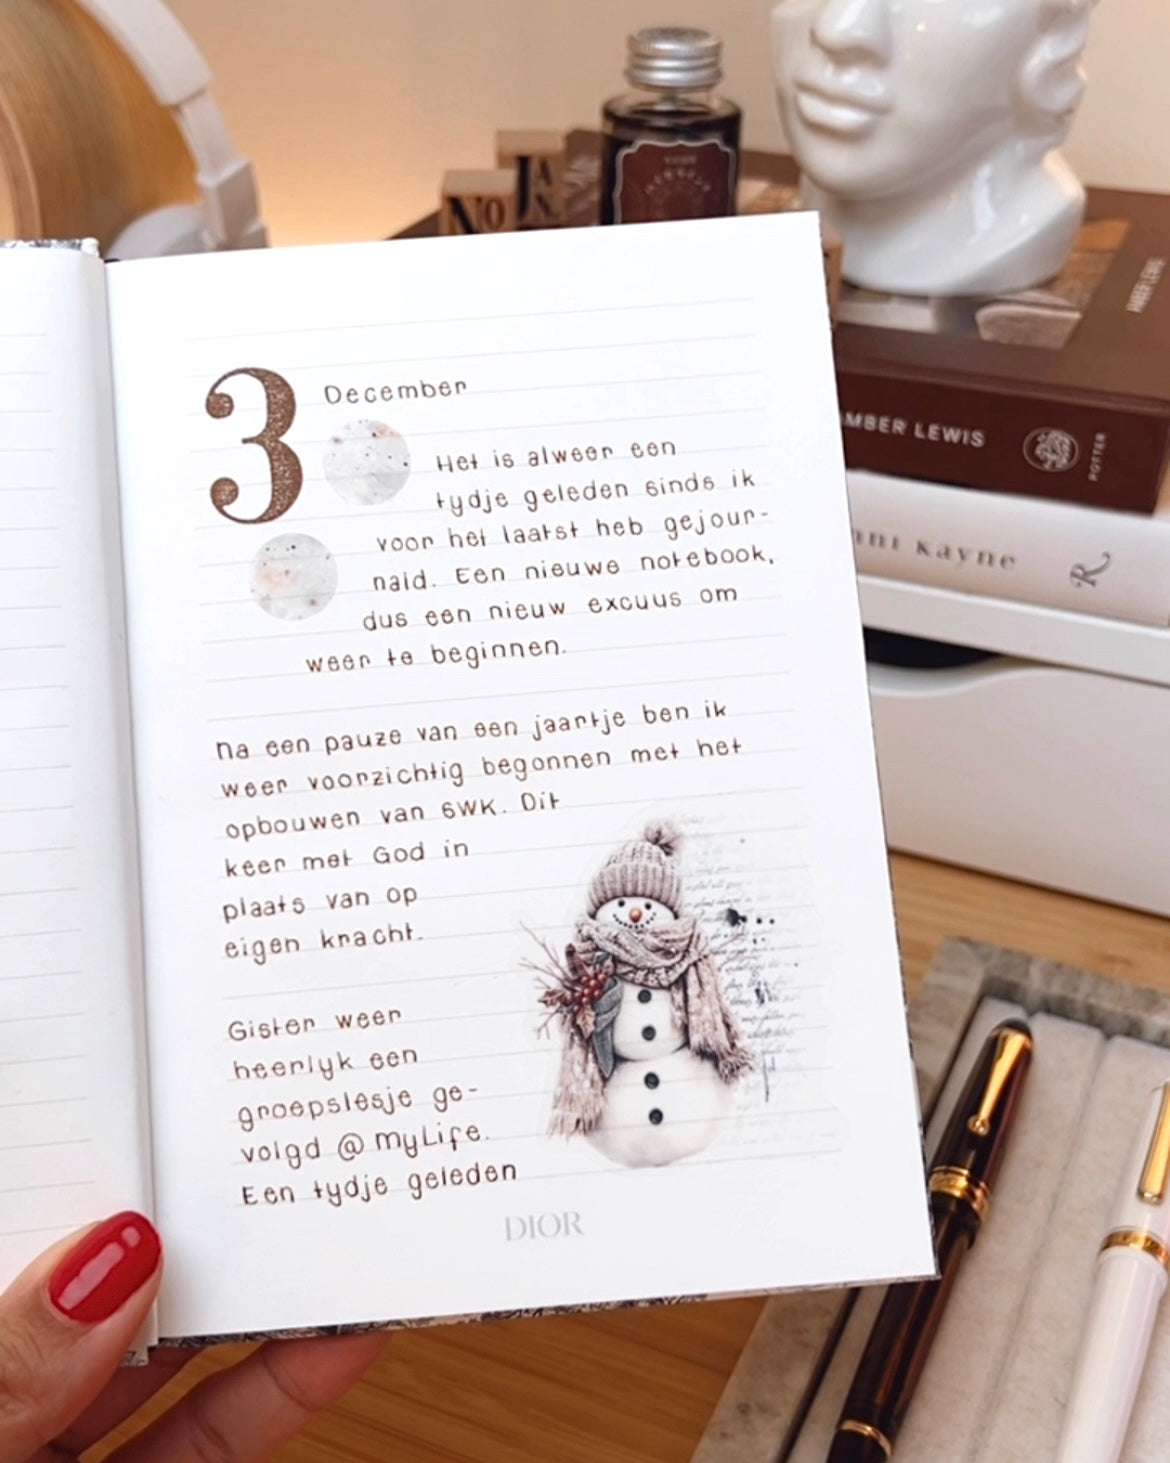 No
JA
AMBER LEWIS
AMBER LEWIS
POTTER
kayne
R
3
December
Het is alweer een
tydje geleden sinds ik
voor het laatst heb gejour-
nald. Een nieuwe notebook,
dus een nieuw excuus om
weer te beginnen.
Na een pauze van een jaartje ben ik
weer voorzichtig begonnen met het
opbouwen van SWK. Dit
keer met God in
plaats van op
eigen kracht.
Gister weer
heerlyk een
groepslesje ge-
volgd @ myLife.
Een tydje geleden
DIOR